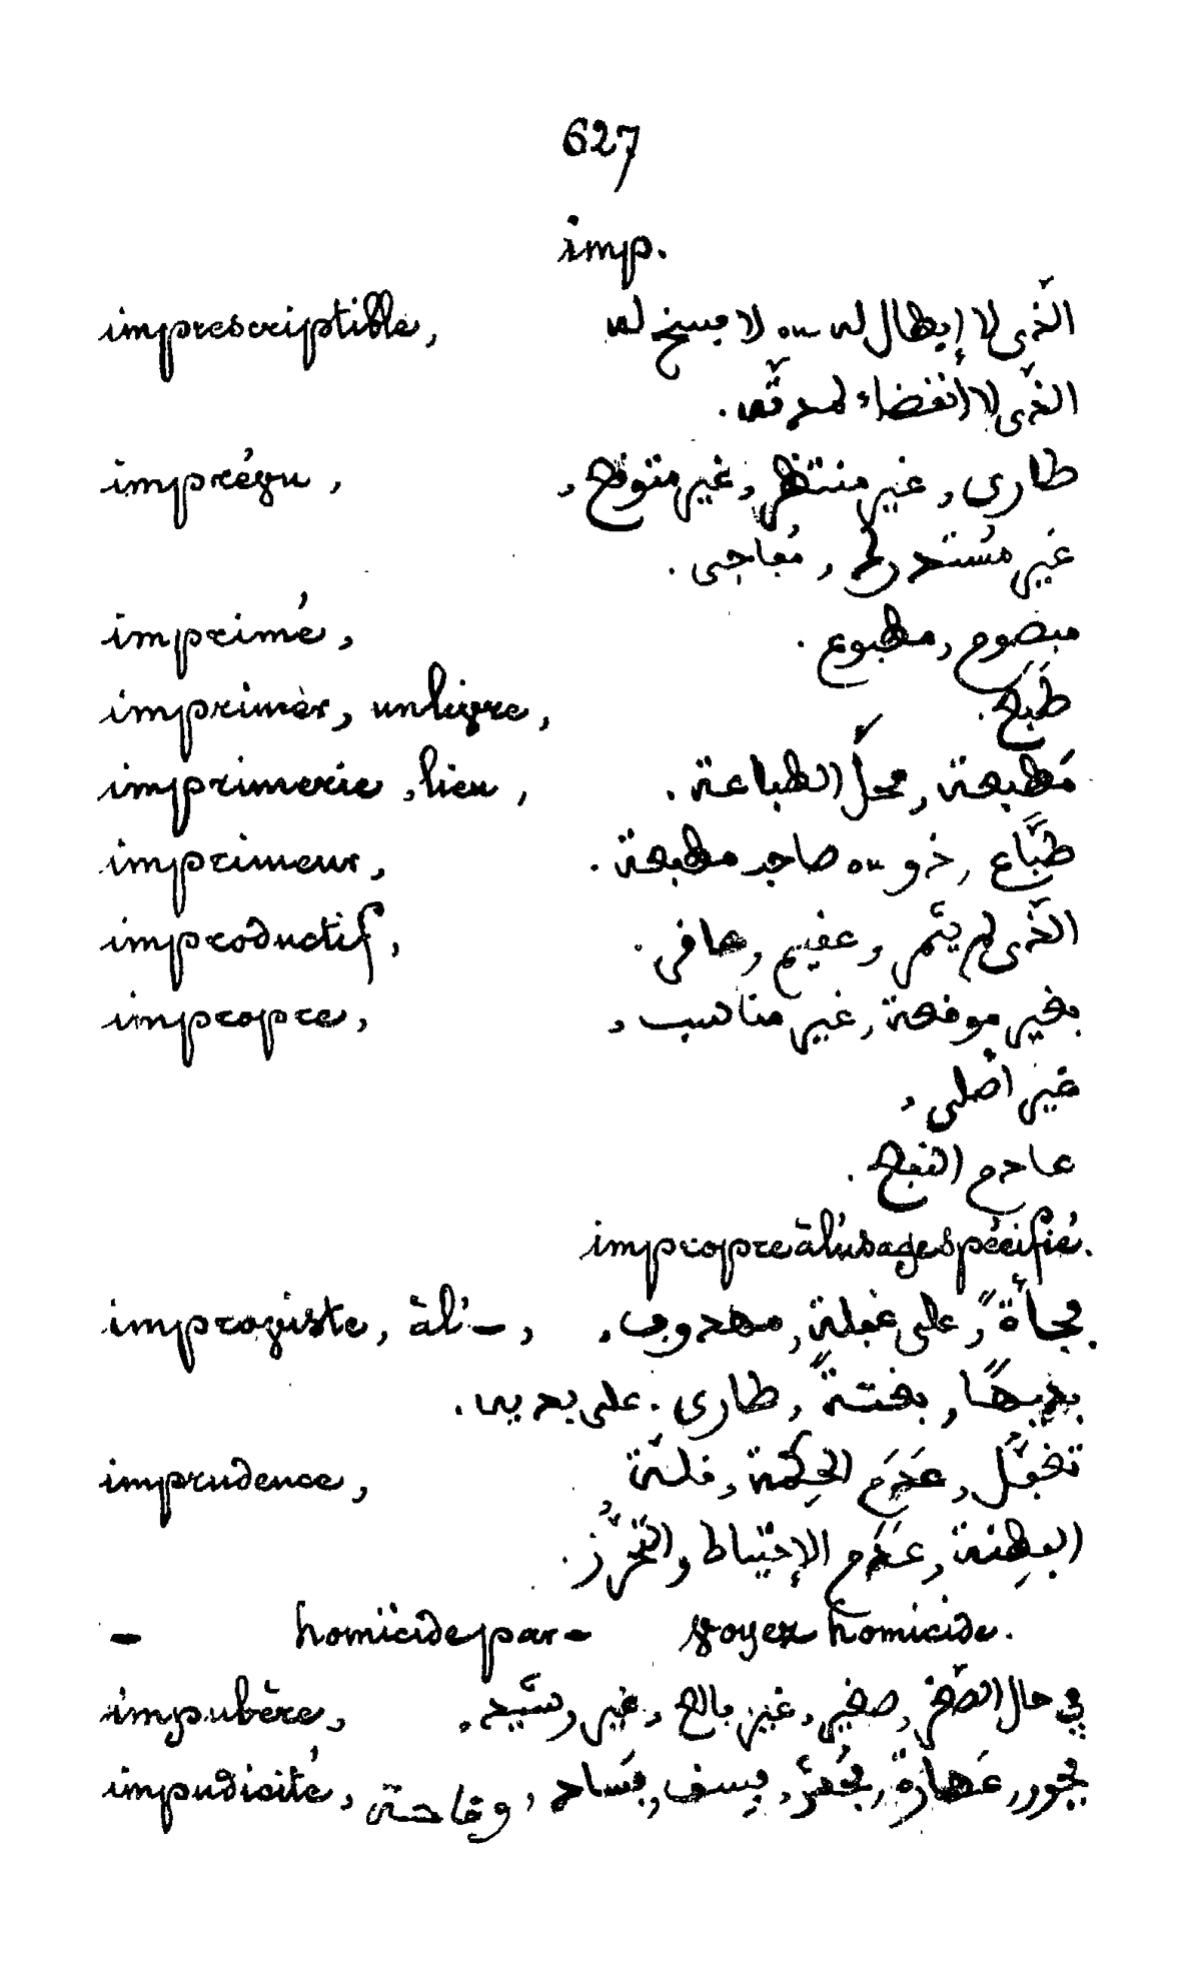 627
imp.
imprescriptible, الذّى لا إبطال له ou لا فسخ له
الذّى لا انقضاء لمدّته.
imprévu, طارى, غير منتظر, غير متوقع,
غير مُستدرك, مُفاجى.
imprimé, مبصوم, مطبوع.
imprimer, un livre, طَبَع.
imprimerie, lieu, مَطبعة, محلّ الطباعة.
imprimeur, طبَّاع, ذو ou صاحب مطبعة.
improductif, الذّى لم يثمر, عقيم, عافر.
impropre, بغير موقعة, غير مناسب,
غير اصلى,
عادم النفع.
impropre à l'usage spécifié.
improviste, à l'–, فجأةً, على غفلة,
بديهًا, بغتةً, طارى. على بديه.
imprudence, تغفّل, عَدَم الحِكمة, قلّة
الفِطنة, عَدَم الإحتياط والتحرُّز.
– homicide par – Voyez homicide.
impubère, في حال الصّغر, صغير, غير بالغ, غير رشيد.
impudicité, فجور, عَهارة, فسق, فَساد, وقاحة